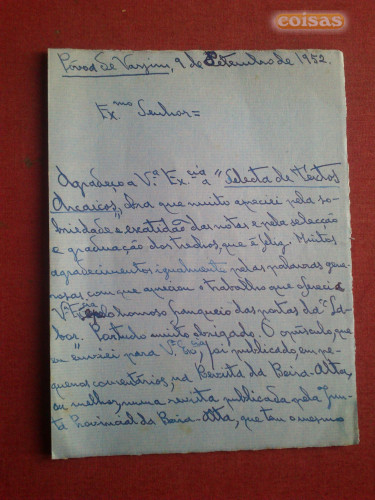 coisas
Póvoa de Varzim, 9 de Setembro de 1952.
Ex.mo Senhor =
Agradeço a V.ª Ex.cia a "Selecta de Textos
Arcaicos", obra que muito apreciei pela so-
briedade e exatidão das notas e pela selecção
e graduação dos trechos, que é feliz. Muitos
agradecimentos igualmente pelas palavras gene-
rosas com que apreciou o trabalho que ofereci a
V.ª Ex.cia e pelo honroso franqueio das portas da "La-
bor". Por tudo muito obrigado. O opúsculo, que
eu enviei para V.ª Ex.cia, foi publicado, em pe-
quenos comentários, na Revista da Beira-Alta,
ou melhor, numa revista publicada pela Jun-
ta Provincial da Beira-Alta, que tem o mesmo